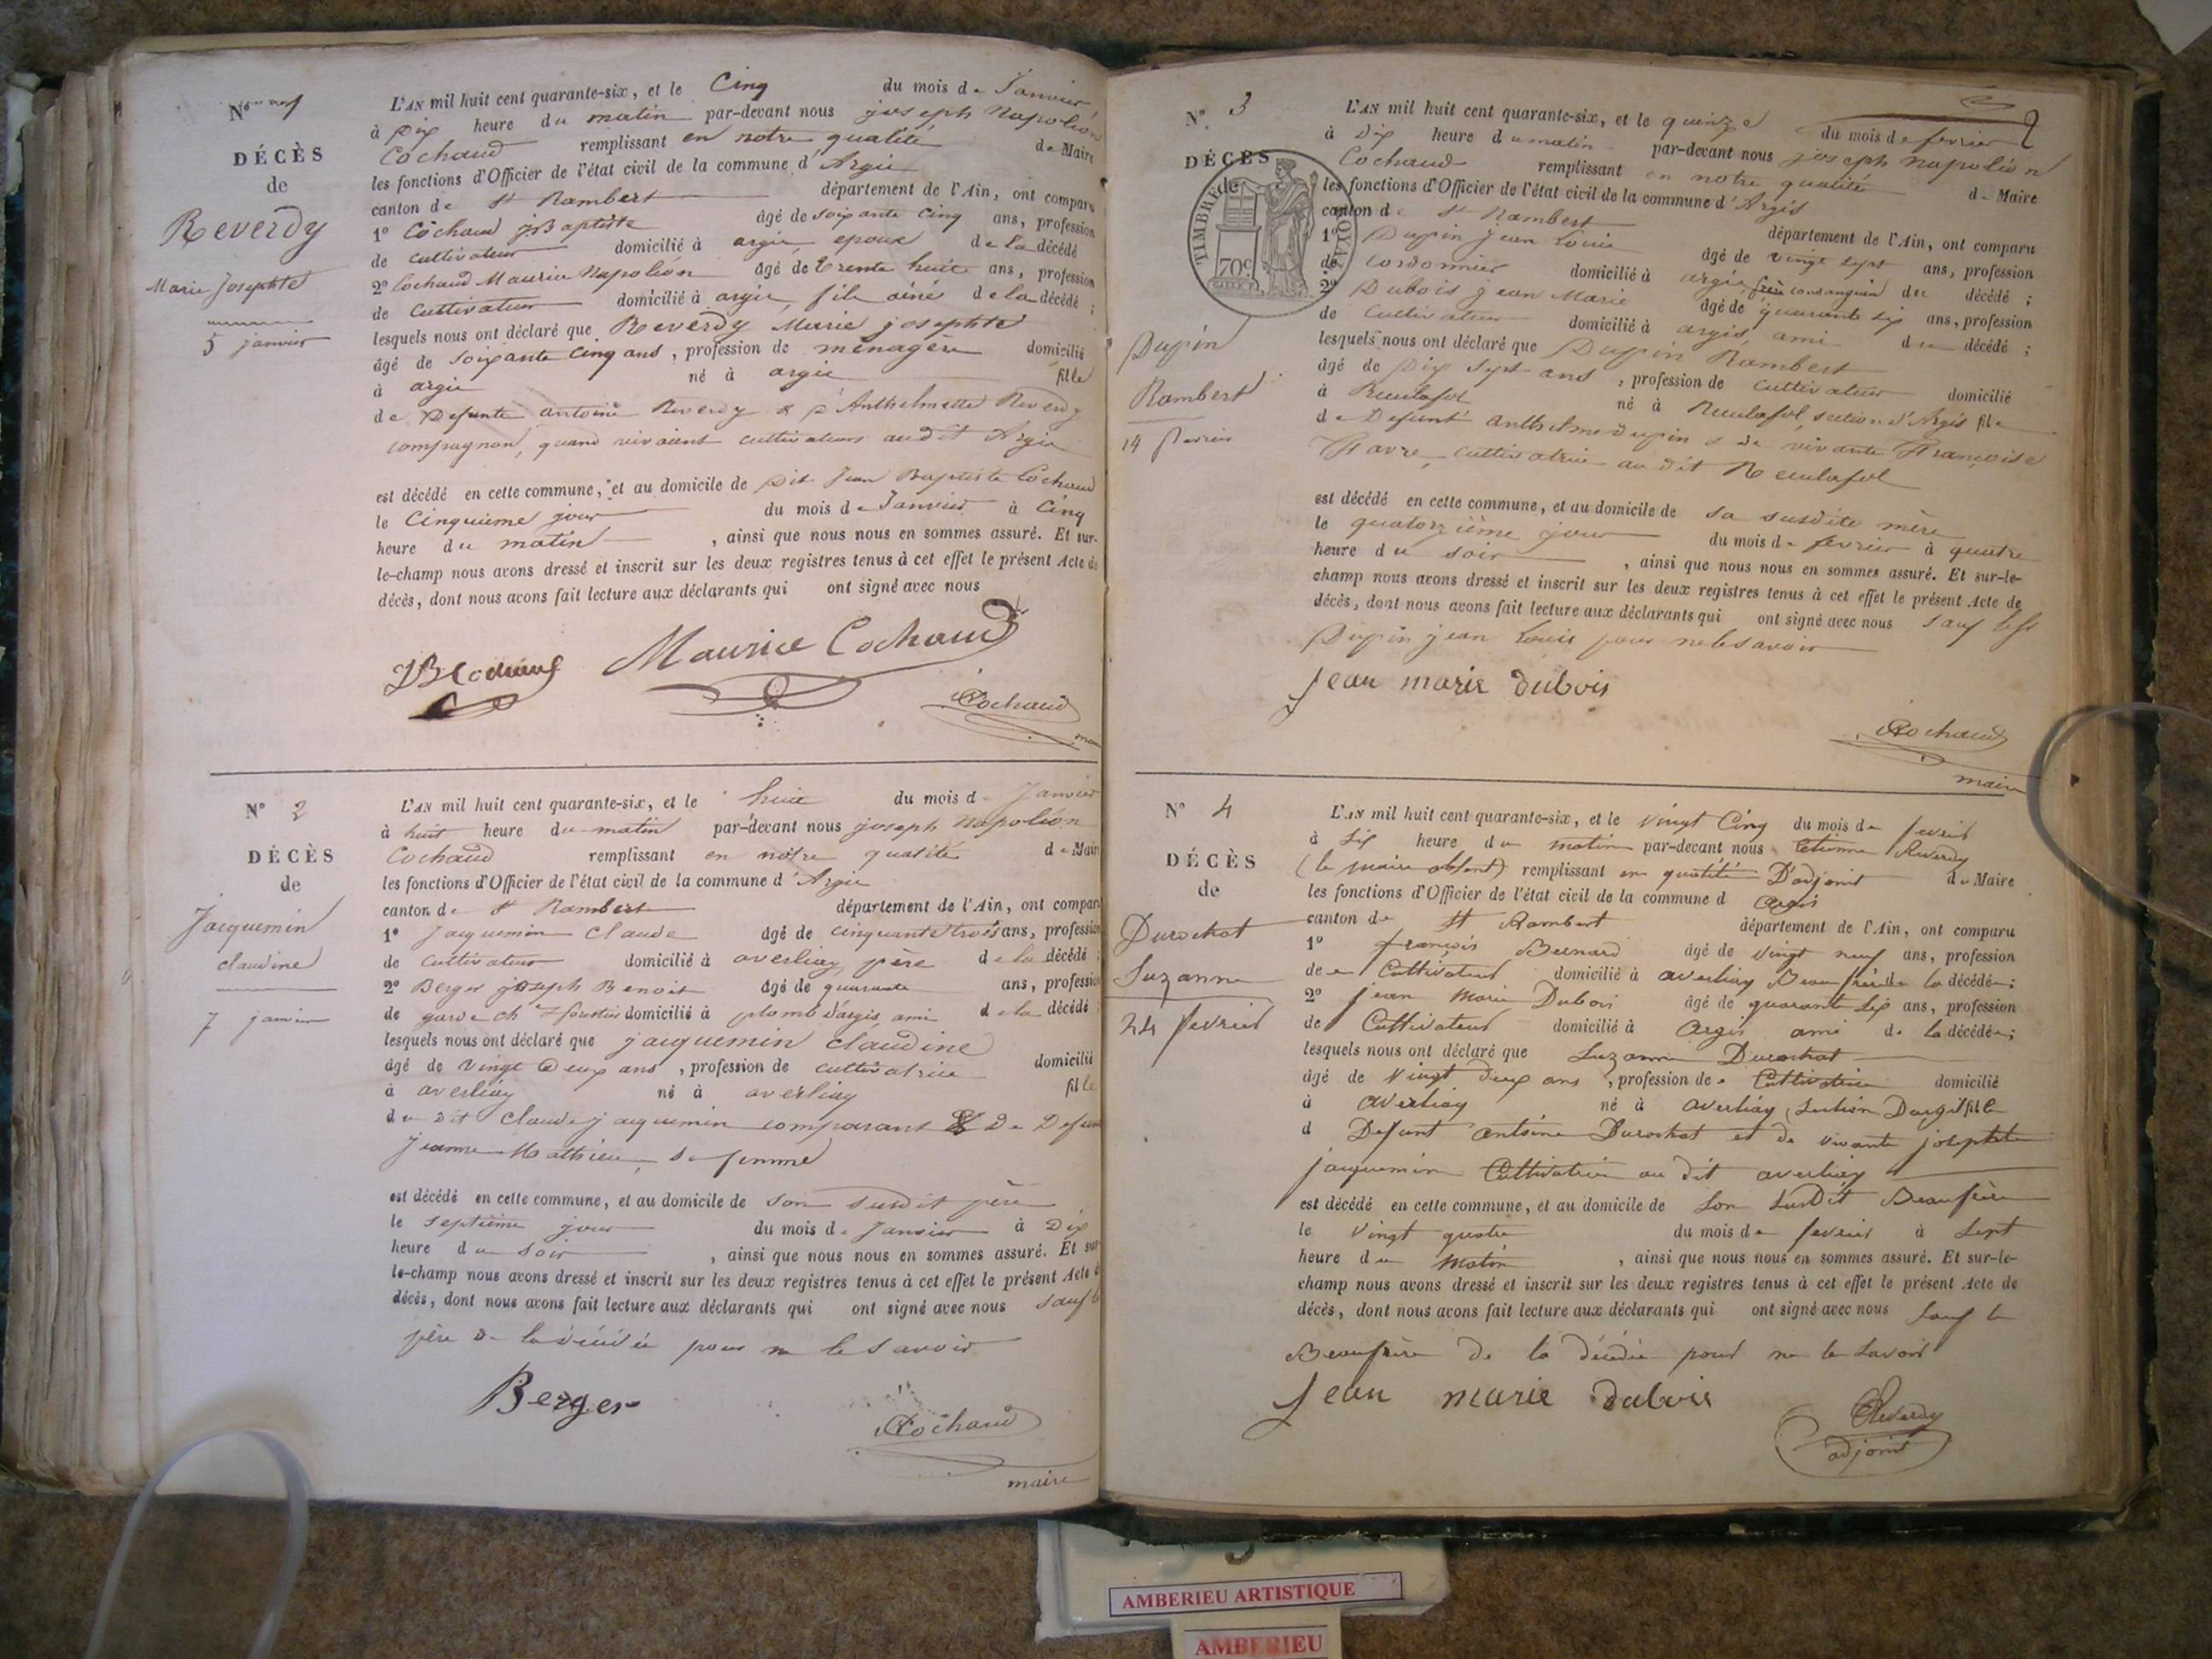 N° 1
DÉCÈS
de
Reverdy
Marie Josephte
5 janvier
L'AN mil huit cent quarante-six, et le Cinq du mois de Janvier
à Dix heure du matin par-devant nous joseph Napoléon
Cochaud remplissant en notre qualité de Maire
les fonctions d'Officier de l'état civil de la commune d'Argis
canton de St Rambert département de l'Ain, ont comparu
1° Cochaud j Baptiste âgé de soixante cinq ans, profession
de cultivateur domicilié à argis, epoux de la décédé
2° Cochaud Maurice Napoléon âgé de trente huit ans, profession
de cultivateur domicilié à argis, fils ainé de la décédé ;
lesquels nous ont déclaré que Reverdy Marie josephte
âgé de soixante cinq ans, profession de ménagère domicilié
à argis né à argis fille
de Defunts antoine Reverdy & d'Anthelmette Reverdy
compagnon, quand vivaient cultivateurs audit Argis
est décédé en cette commune, et au domicile de Dit Jean Baptiste Cochaud
le Cinquième jour du mois de Janvier à Cinq
heure du matin, ainsi que nous nous en sommes assuré. Et sur-
le-champ nous avons dressé et inscrit sur les deux registres tenus à cet effet le présent Acte de
décès, dont nous avons fait lecture aux déclarants qui ont signé avec nous
JB Cochaud Maurice Cochaud
Cochaud
N° 2
DÉCÈS
de
Jacquemin
claudine
7 janvier
L'AN mil huit cent quarante-six, et le huit du mois de Janvier
à huit heure du matin par-devant nous joseph Napoléon
Cochaud remplissant en notre qualité de Maire
les fonctions d'Officier de l'état civil de la commune d'Argis
canton de St Rambert département de l'Ain, ont comparu
1° Jacquemin Claude âgé de cinquante trois ans, profession
de cultivateur domicilié à averliaz, père de la décédé ;
2° Berger joseph Benoit âgé de quarante ans, profession
de garde ch domicilié à plomb d'argis, ami de la décédé
lesquels nous ont déclaré que jacquemin claudine
âgé de vingt deux ans, profession de cultivatrice domicilié
à averliaz né à averliaz fille
du dit Claude jacquemin comparant & de Defunte
Jeanne Mathieu, sa femme
est décédé en cette commune, et au domicile de son susdit père
le septième jour du mois de Janvier à Dix
heure du soir, ainsi que nous nous en sommes assuré. Et sur
le-champ nous avons dressé et inscrit sur les deux registres tenus à cet effet le présent Acte d
décès, dont nous avons fait lecture aux déclarants qui ont signé avec nous sauf le
père de la décédée pour ne le savoir
Berger
Cochaud
maire
2
N° 3
DÉCÈS
de
TIMBRE ROYAL
70c
Dupin
Rambert
14 fevrier
L'AN mil huit cent quarante-six, et le quinze du mois de fevrier
à Dix heure du matin par-devant nous joseph napoléon
Cochaud remplissant en notre qualité de Maire
les fonctions d'Officier de l'état civil de la commune d'Argis
canton de St Rambert département de l'Ain, ont comparu
1° Dupin jean Louis âgé de vingt sept ans, profession
de cordonnier domicilié à argis, frère consanguin du décédé ;
2° Dubois jean Marie âgé de quarante six ans, profession
de Cultivateur domicilié à argis, ami du décédé ;
lesquels nous ont déclaré que Dupin Rambert
âgé de Dix sept ans, profession de cultivateur domicilié
à Reculafol né à Reculafol, section d'Argis fils
de Defunt anthelme dupin & de vivante Françoise
Favre, cultivatrice au dit Reculafol
est décédé en cette commune, et au domicile de sa susdite mère
le quatorzième jour du mois de fevrier à quatre
heure du soir, ainsi que nous nous en sommes assuré. Et sur-le-
champ nous avons dressé et inscrit sur les deux registres tenus à cet effet le présent Acte de
décès, dont nous avons fait lecture aux déclarants qui ont signé avec nous sauf
Dupin jean Louis pour ne le savoir
jean marie dubois
Cochaud
maire
N° 4
DÉCÈS
de
Durochat
Suzanne
24 fevrier
L'AN mil huit cent quarante-six, et le vingt Cinq du mois de fevrier
à six heure du matin par-devant nous Etienne Reverdy
(le maire absent) remplissant en qualité D'adjoint de Maire
les fonctions d'Officier de l'état civil de la commune d Argis
canton de St Rambert département de l'Ain, ont comparu
1° françois Bernard âgé de vingt neuf ans, profession
de Cultivateur domicilié à averliaz Beaufrère de la décédée ;
2° jean Marie Dubois âgé de quarante six ans, profession
de Cultivateur domicilié à Argis ami de la décédée ;
lesquels nous ont déclaré que Suzanne Durochat
âgé de vingt deux ans, profession de Cultivatrice domicilié
à averliaz né à averliaz, section Dargis fille
d Defunt antoine Durochat et de vivante josephte
jacquemin Cultivatrice au dit averliaz
est décédé en cette commune, et au domicile de son susdit Beaufrère
le vingt quatre du mois de fevrier à sept
heure du matin, ainsi que nous nous en sommes assuré. Et sur-le-
champ nous avons dressé et inscrit sur les deux registres tenus à cet effet le présent Acte de
décès, dont nous avons fait lecture aux déclarants qui ont signé avec nous sauf le
Beaufrère de la décédée pour ne le savoir
jean marie dubois
Reverdy
adjoint
AMBERIEU ARTISTIQUE
AMBERIEU